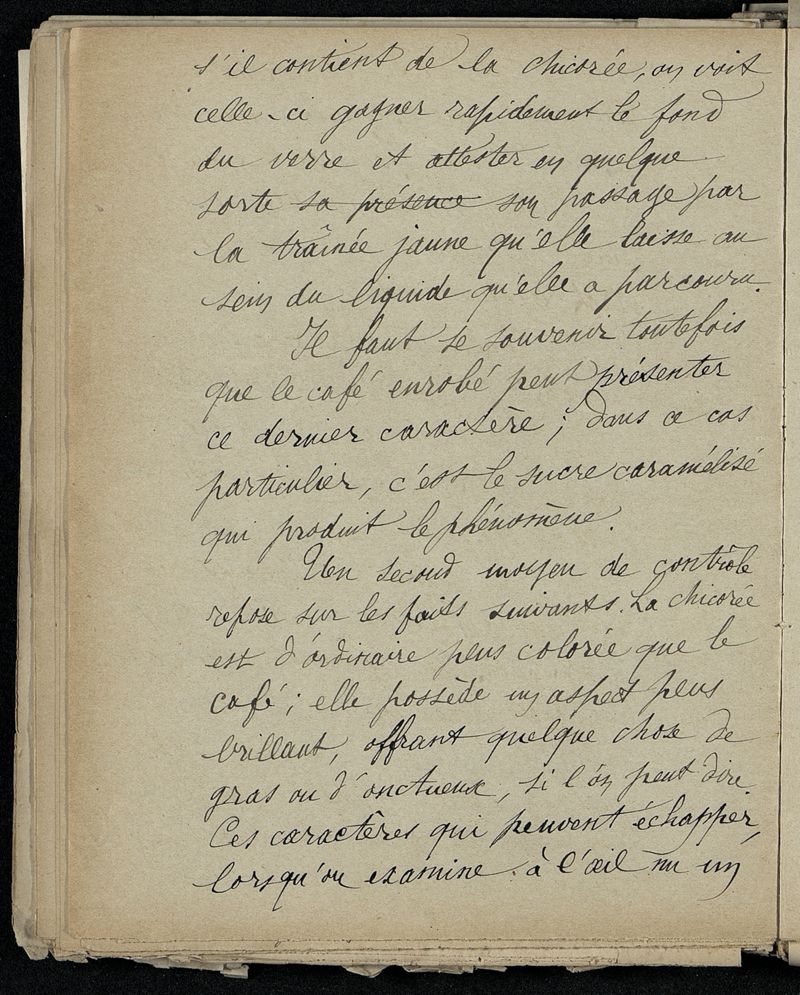 s'il contient de la chicorée, on voit
celle-ci gagner rapidement le fond
du verre et attester en quelque
sorte sa présence son passage par
la traînée jaune qu'elle laisse au
sein du liquide qu'elle a parcouru.
Il faut se souvenir toutefois
que le café enrobé peut présenter
ce dernier caractère ; dans ce cas
particulier, c'est le sucre caramélisé
qui produit le phénomène.
Un second moyen de contrôle
repose sur les faits suivants. La chicorée
est d'ordinaire plus colorée que le
café ; elle possède un aspect plus
brillant, offrant quelque chose de
gras ou d'onctueux, si l'on peut dire.
Ces caractères qui peuvent échapper,
lorsqu'on examine à l'œil nu un